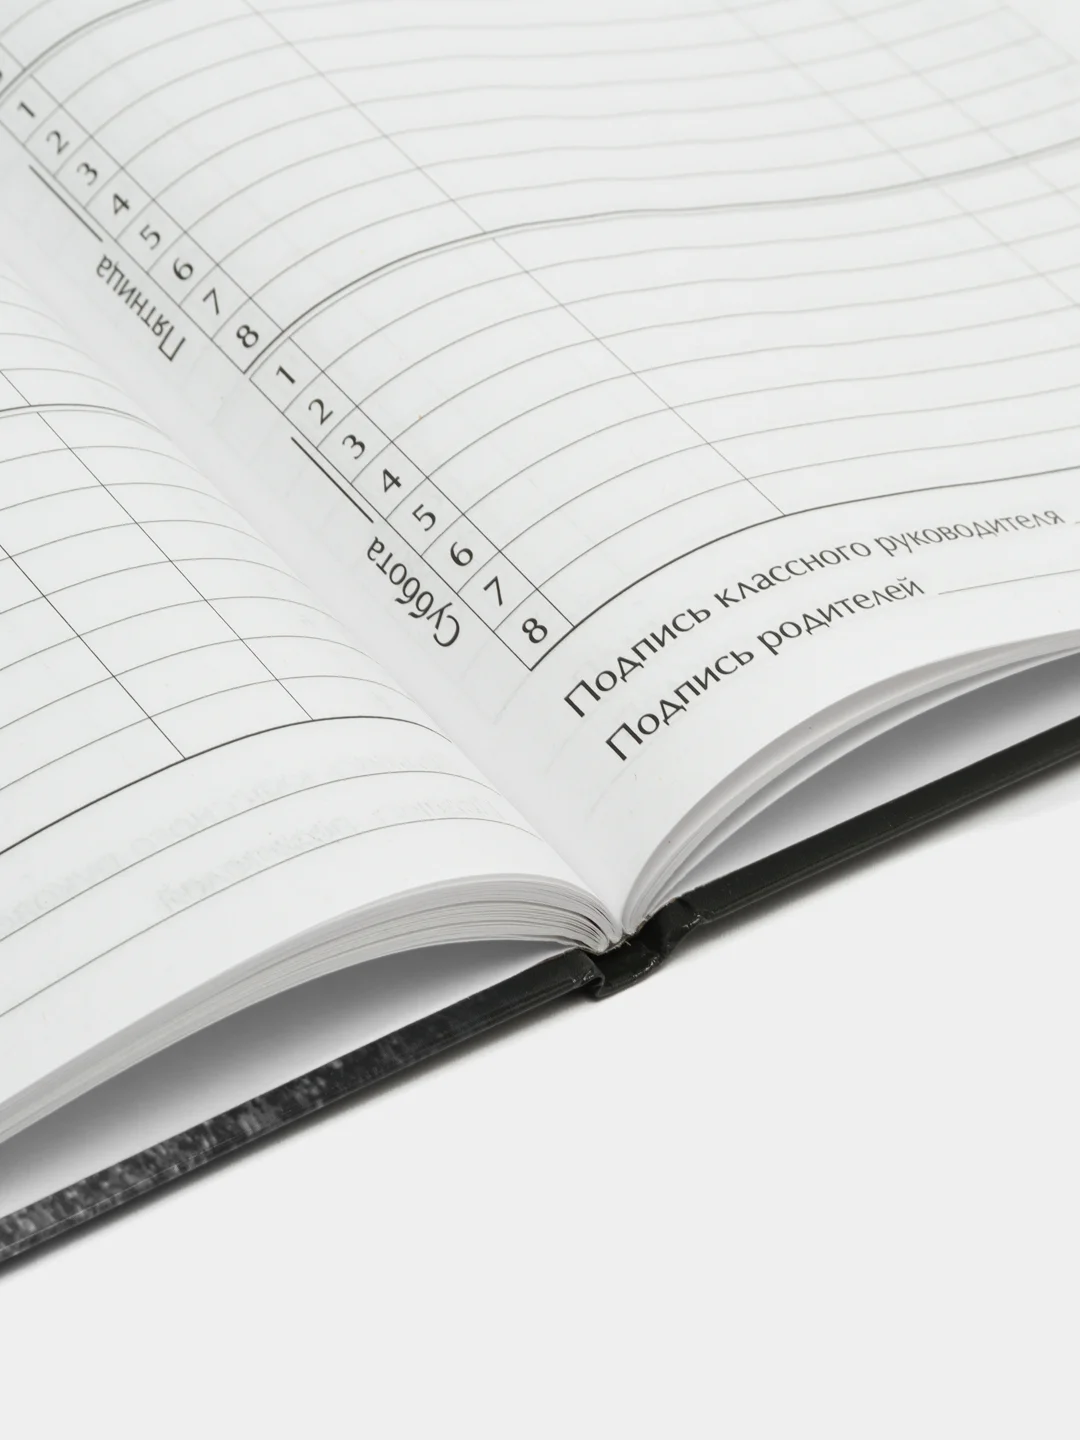 Пятница
1
2
3
4
5
6
7
8
Суббота
1
2
3
4
5
6
7
8
Подпись классного руководителя
Подпись родителей